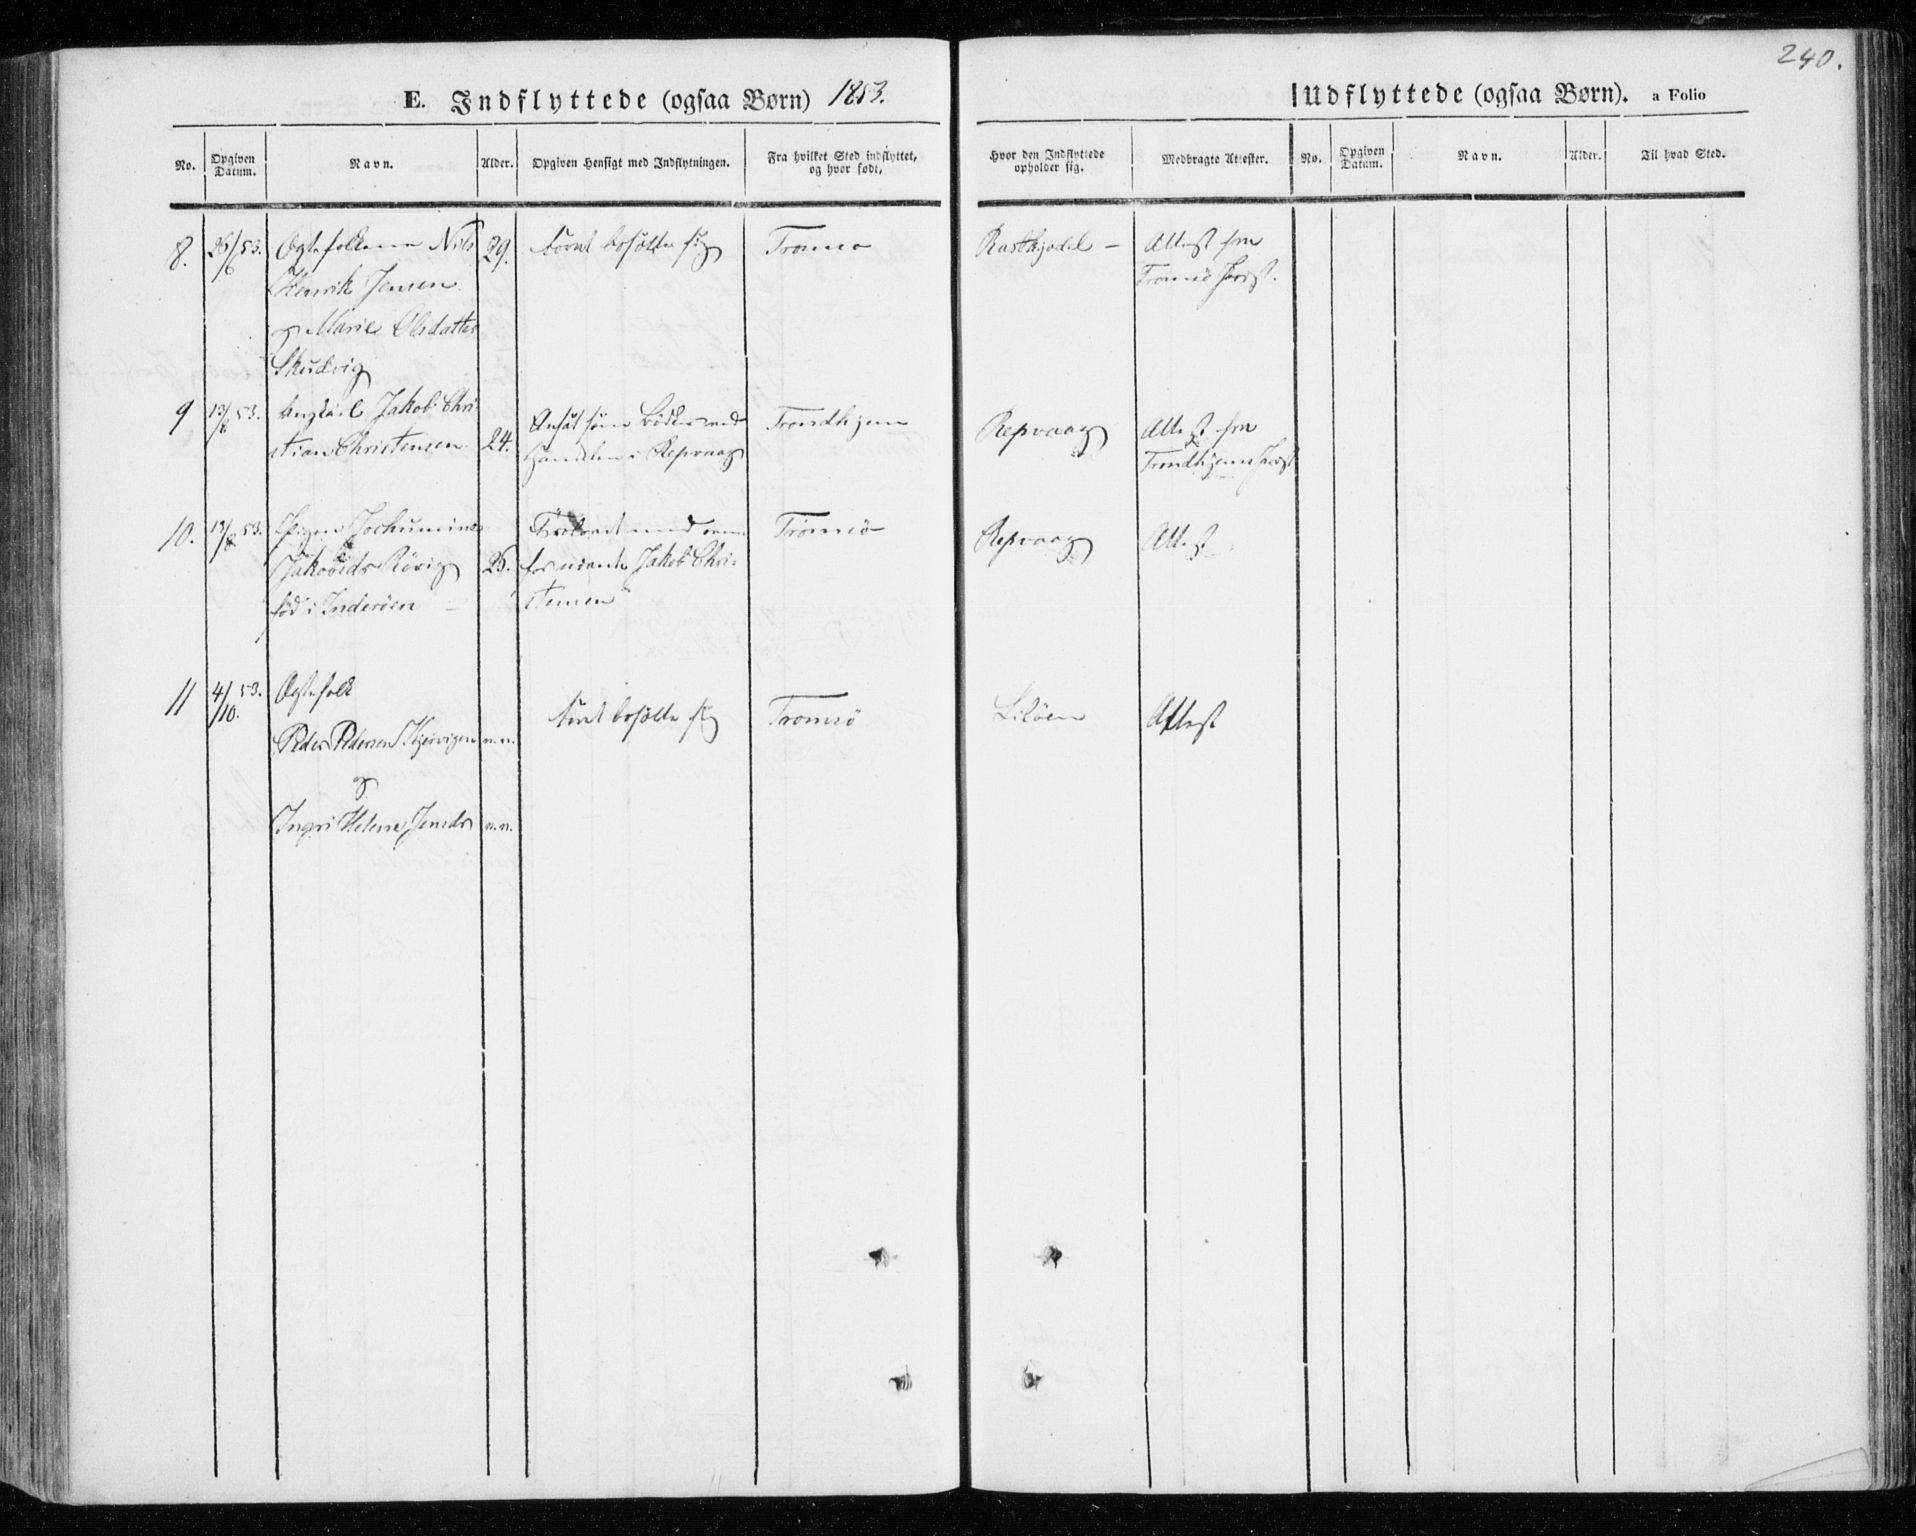 240.
E. Indflyttede (ogsaa Børn) 1853.
Udflyttede (ogsaa Børn). a Folio
No. Opgiven Datum. Navn. Alder. Opgiven Hensigt med Indflytningen. Fra hvilket Sted indflyttet, og hvor født,
Hvor den Indflyttede opholder sig. Medbragte Attester. No. Opgiven Datum. Navn. Alder. Til hvad Sted.
8. 26/6 53. Ægtefolkene Nils 29. bosætte sig Tromsø Attest fra
Henrik Jensen Tromsø
og Marie Olsdatter
Skudvig
9 13/8 53. Ungkarl Jakob Chri-
stian Christensen 24. Ansat som Bødker ved Trondhjem Repvaag Attest fra
Handelen i Repvaag Trondhjems
10. 13/8 53. Pigen Jochumine Trolovet med oven Tromsø Repvaag Attest
Jakobsdr Rövig 25. for nævnte Jakob Chri-
fød i Inderöen stensen
11 4/10. 53. Ægtefolk
Peder Pedersen n.n. bosætte sig Tromsö Lilöen Attest
og
Ingri Helene Jensdr n.n.